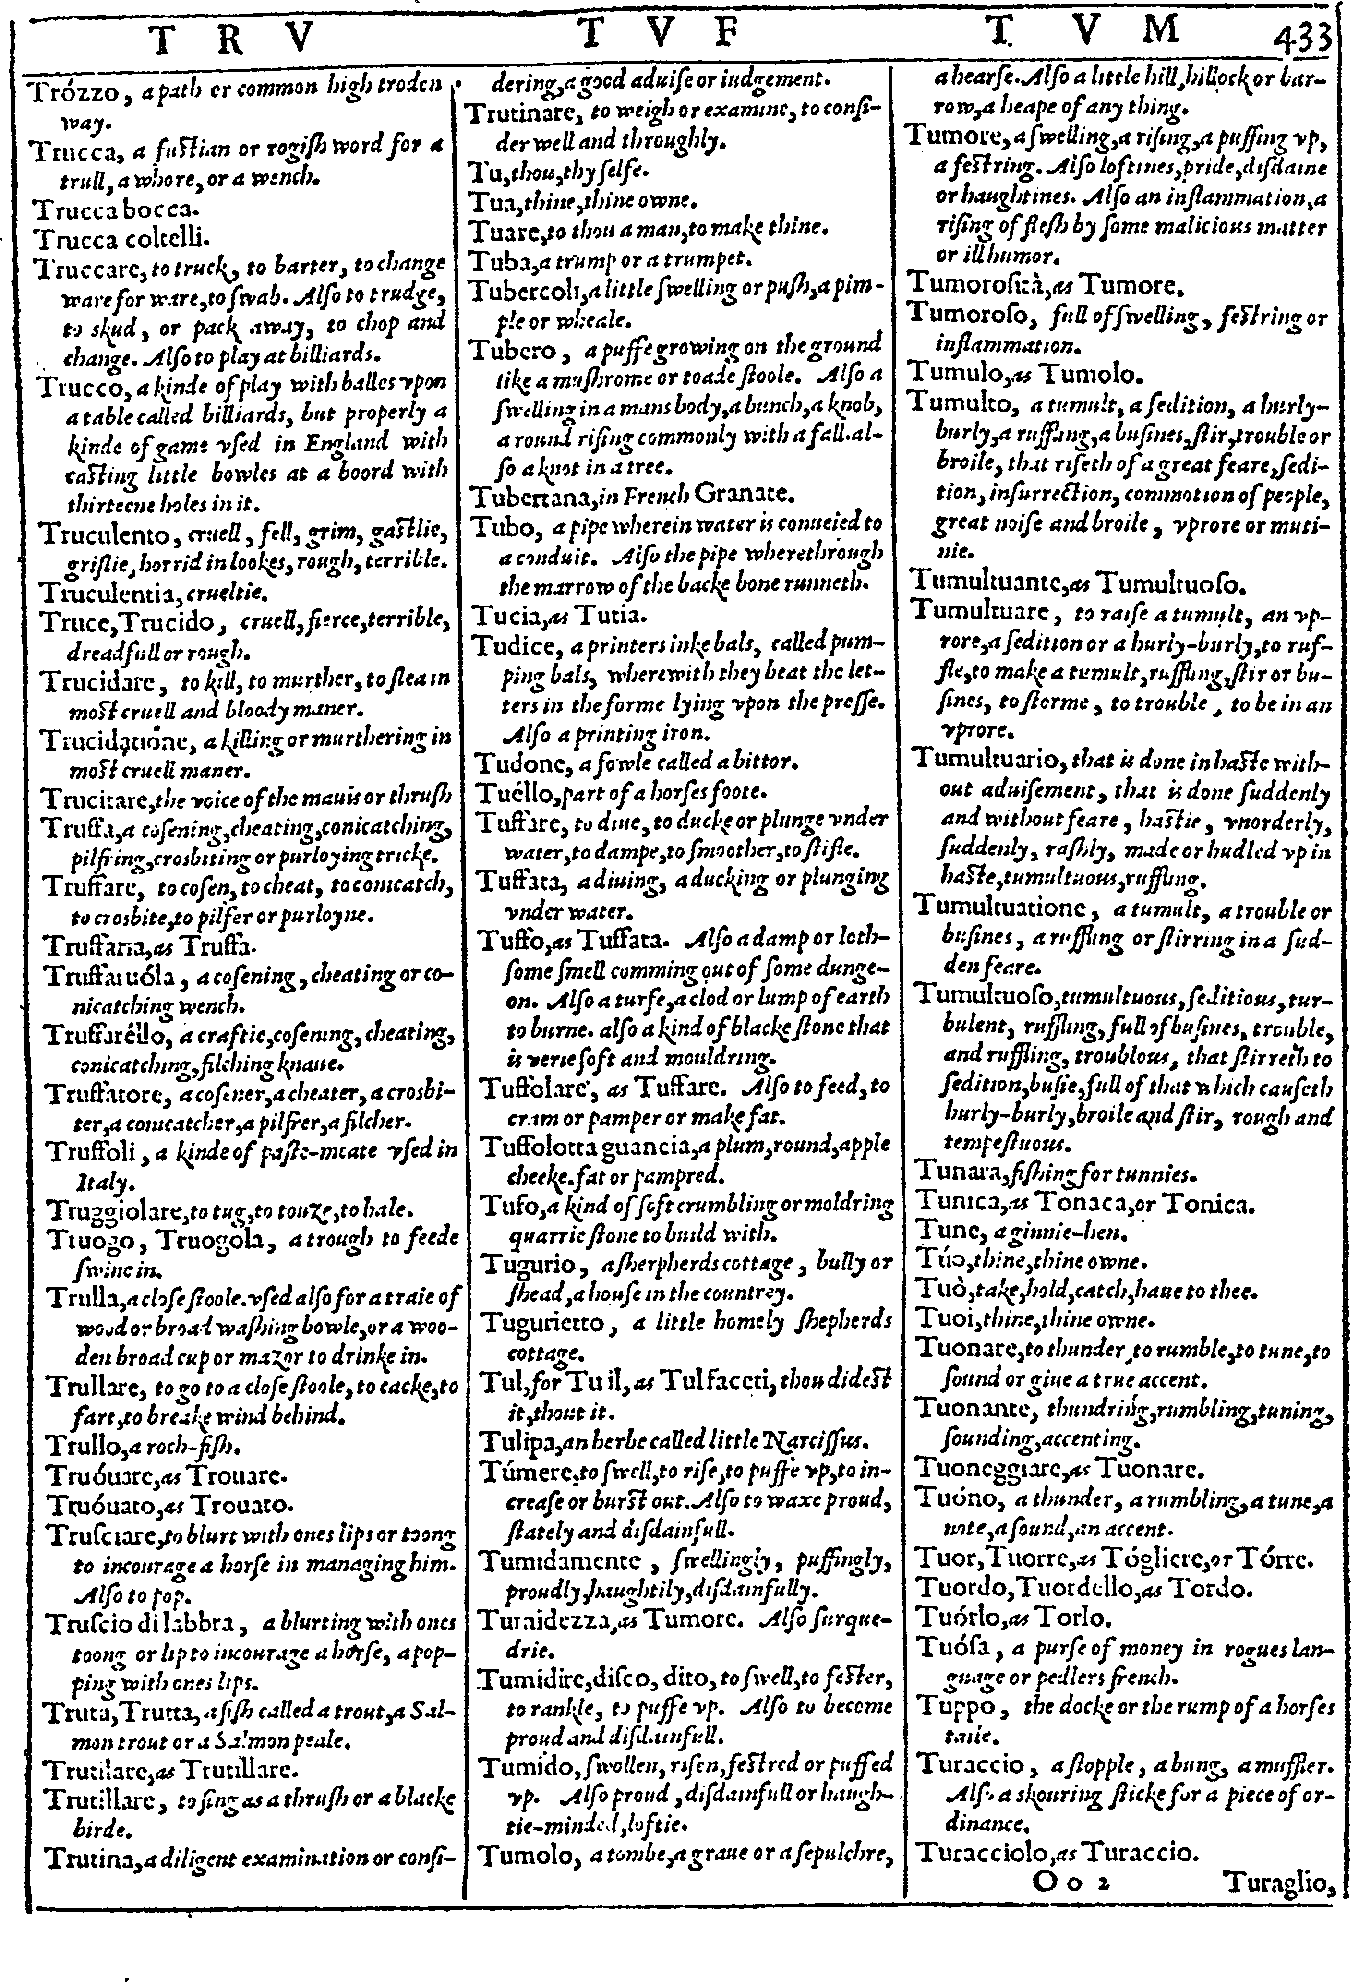 T R V T V F T V M 433
Trózzo, a path or common high troden
way.
Trucca, a fustian or rogish word for a
trull, a whore, or a wench.
Trucca bocca.
Trucca coltelli.
Truccare, to truck, to barter, to change
ware for ware, to swab. Also to trudge,
to skud, or pack away, to chop and
change. Also to play at billiards.
Trucco, a kinde of play with balles vpon
a table called billiards, but properly a
kinde of game vsed in England with
casting little bowles at a boord with
thirteene holes in it.
Truculento, cruell, fell, grim, gastlie,
grislie, horrid in lookes, rough, terrible.
Truculentia, crueltie.
Truce, Trucido, cruell, fierce, terrible,
dreadfull or rough.
Trucidare, to kill, to murther, to slea in
most cruell and bloody maner.
Trucidatióne, a killing or murthering in
most cruell maner.
Trucitare, the voice of the mauis or thrush
Truffa, a cosening, cheating, conicatching,
pilfring, crosbiting or purloying tricke.
Truffare, to cosen, to cheat, to conicatch,
to crosbite, to pilfer or purloyne.
Truffaria, as Truffa.
Truffaruóla, a cosening, cheating or co-
nicatching wench.
Truffaréllo, a craftie, cosening, cheating,
conicatching, filching knaue.
Truffatore, a cosener, a cheater, a crosbi-
ter, a conicatcher, a pilfrer, a filcher.
Truffoli, a kinde of paste-meate vsed in
Italy.
Truggiolare, to tug, to touze, to hale.
Truogo, Truogola, a trough to feede
swine in.
Trulla, a close stoole. vsed also for a traie of
wood or broad washing bowle, or a woo-
den broad cup or mazor to drinke in.
Trullare, to go to a close stoole, to cacke, to
fart, to breake wind behind.
Trullo, a roch-fish.
Truóuare, as Trouare.
Truóuato, as Trouato.
Trusciare, to blurt with ones lips or toong
to incourage a horse in managing him.
Also to pop.
Truscio di labbra, a blurting with ones
toong or lip to incourage a horse, a pop-
ping with ones lips.
Truta, Trutta, a fish called a trout, a Sal-
mon trout or a Salmon peale.
Trutilare, as Trutillare.
Trutillare, to sing as a thrush or a blacke
birde.
Trutina, a diligent examination or consi-
dering, a good aduise or iudgement.
Trutinare, to weigh or examine, to consi-
der well and throughly.
Tu, thou, thy selfe.
Tua, thine, thine owne.
Tuare, to thou a man, to make thine.
Tuba, a trump or a trumpet.
Tubercoli, a little swelling or push, a pim-
ple or wheale.
Tubero, a puffe growing on the ground
like a mushrome or toade stoole. Also a
swelling in a mans body, a bunch, a knob,
a round rising commonly with a fall. al-
so a knot in a tree.
Tubertana, in French Granate.
Tubo, a pipe wherein water is conueied to
a conduit. Also the pipe wherethrough
the marrow of the backe bone runneth.
Tucia, as Tutia.
Tudice, a printers inke bals, called pum-
ping bals, wherewith they beat the let-
ters in the forme lying vpon the presse.
Also a printing iron.
Tudone, a fowle called a bittor.
Tuéllo, part of a horses foote.
Tuffare, to diue, to ducke or plunge vnder
water, to dampe, to smoother, to stifle.
Tuffata, a diuing, a ducking or plunging
vnder water.
Tuffo, as Tuffata. Also a damp or loth-
some smell comming out of some dunge-
on. Also a turfe, a clod or lump of earth
to burne. also a kind of blacke stone that
is verie soft and mouldring.
Tuffolare, as Tuffare. Also to feed, to
cram or pamper or make fat.
Tuffolotta guancia, a plum, round, apple
cheeke. fat or pampred.
Tufo, a kind of soft crumbling or moldring
quarrie stone to build with.
Tugurio, a sherpherds cottage, bully or
shead, a house in the countrey.
Tugurietto, a little homely shepherds
cottage.
Tul, for Tu il, as Tul faceti, thou didest
it, thou it.
Tulipa, an herbe called little Narcissus.
Túmere, to swell, to rise, to puffe vp, to in-
crease or burst out. Also to waxe proud,
stately and disdainfull.
Tumidamente, swellingly, puffingly,
proudly, haughtily, disdainfully.
Tumidezza, as Tumore. Also surque-
drie.
Tumidire, disco, dito, to swell, to fester,
to rankle, to puffe vp. Also to become
proud and disdainfull.
Tumido, swollen, risen, festred or puffed
vp. Also proud, disdainfull or haugh-
tie-minded, loftie.
Tumolo, a tombe, a graue or a sepulchre,
a hearse. Also a little hill, hillock or bar-
row, a heape of any thing.
Tumore, a swelling, a rising, a puffing vp,
a festring. Also loftines, pride, disdaine
or haughtines. Also an inflammation, a
rising of flesh by some malicious matter
or ill humor.
Tumorosità, as Tumore.
Tumoroso, full of swelling, festring or
inflammation.
Tumulo, as Tumolo.
Tumulto, a tumult, a sedition, a hurly-
burly, a ruffling, a busines, stir, trouble or
broile, that riseth of a great feare, sedi-
tion, insurrection, commotion of people,
great noise and broile, vprore or muti-
nie.
Tumultuante, as Tumultuoso.
Tumultuare, to raise a tumult, an vp-
rore, a sedition or a hurly-burly, to ruf-
fle, to make a tumult, ruffling, stir or bu-
sines, to storme, to trouble, to be in an
vprore.
Tumultuario, that is done in haste with-
out aduisement, that is done suddenly
and without feare, hastie, vnorderly,
suddenly, rashly, made or hudled vp in
haste, tumultuous, ruffling.
Tumultuatione, a tumult, a trouble or
busines, a ruffling or stirring in a sud-
den feare.
Tumultuoso, tumultuous, seditious, tur-
bulent, ruffling, full of busines, trouble,
and ruffling, troublous, that stirreth to
sedition, busie, full of that which causeth
hurly-burly, broile and stir, rough and
tempestuous.
Tunara, fishing for tunnies.
Tunica, as Tonaca, or Tonica.
Tune, a ginnie-hen.
Túo, thine, thine owne.
Tuò, take, hold, catch, haue to thee.
Tuoi, thine, thine owne.
Tuonare, to thunder, to rumble, to tune, to
sound or giue a true accent.
Tuonante, thundring, rumbling, tuning,
sounding, accenting.
Tuoneggiare, as Tuonare.
Tuóno, a thunder, a rumbling, a tune, a
note, a sound, an accent.
Tuor, Tuorre, as Tógliere, or Tórre.
Tuordo, Tuordello, as Tordo.
Tuórlo, as Torlo.
Tuósa, a purse of money in rogues lan-
guage or pedlers french.
Tuppo, the docke or the rump of a horses
taile.
Turaccio, a stopple, a bung, a muffler.
Also a skouring sticke for a piece of or-
dinance.
Turacciolo, as Turaccio.
O o 2 Turaglio,